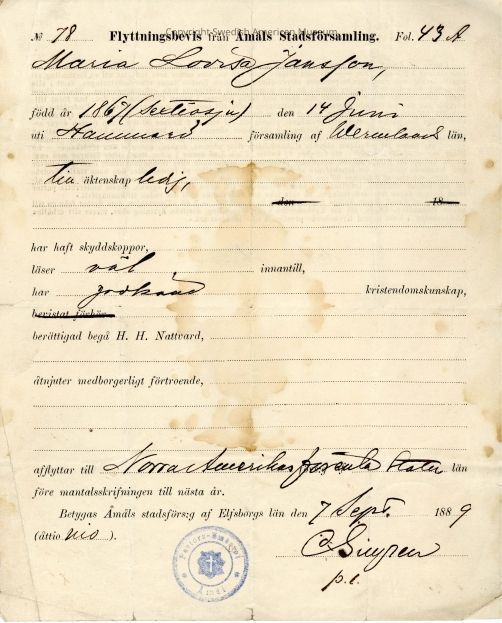 Copyright Swedish American Museum
№ 78 Flyttningsbevis från Åmåls Stadsförsamling. Fol. 43 A
Maria Lovisa Jansson,
född år 1867 (Sextiosju) den 14 Juni
uti Hammarö församling af Wermlands län,
till äktenskap ledig,
den 18
har haft skyddskoppor,
läser väl innantill,
har godkänd kristendomskunskap,
bevistat förhör
berättigad begå H. H. Nattvard,
åtnjuter medborgerligt förtroende,
afflyttar till Norra Amerikas förenta Stater län
före mantalsskrifningen till nästa år.
Betygas Åmåls stadsförs:g af Elfsborgs län den 7 Sept. 1889
(åttio nio).
p. l.
Pastors-Embetet
Åmål